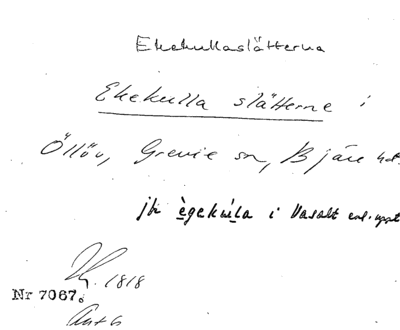 Ekekullaslätterna
Ekekulla slätterne i
Öllöv, Grevie sn, Bjäre hd.
jfr ègekúla i Vasalt enl. uppt
1818
Nr 7067.